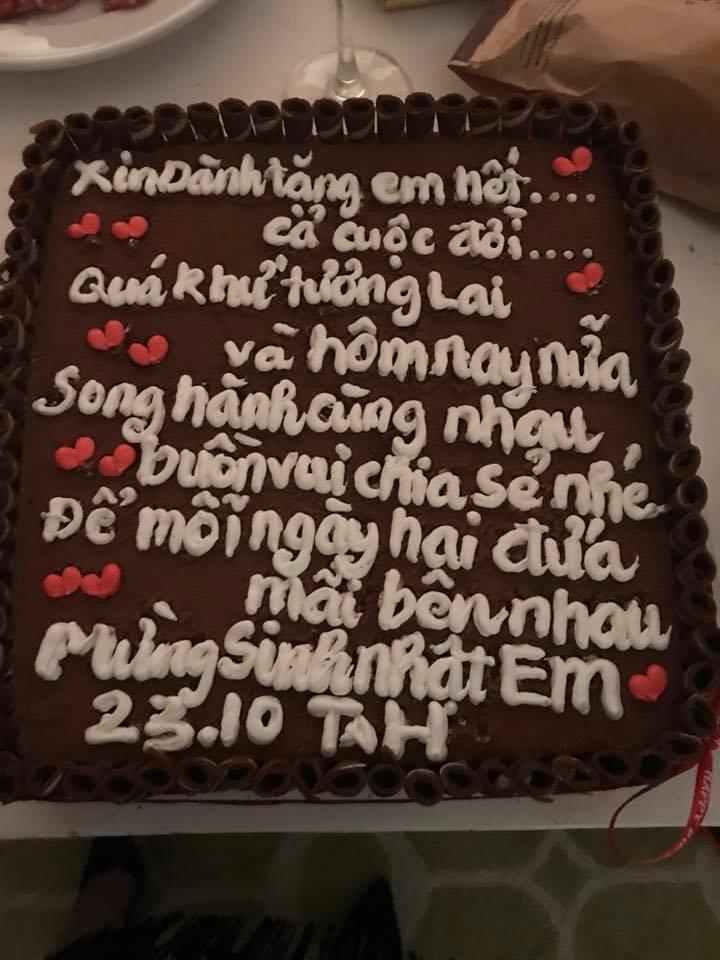 Xin Dành tặng em hết.....
cả cuộc đời.....
Quá khứ tương Lai
và hôm nay nữa
Song hành cùng nhau
buồn vui chia sẻ nhé
Để mỗi ngày hai đứa
mãi bên nhau
Mừng Sinh nhật Em
23.10 T H
HAPPY